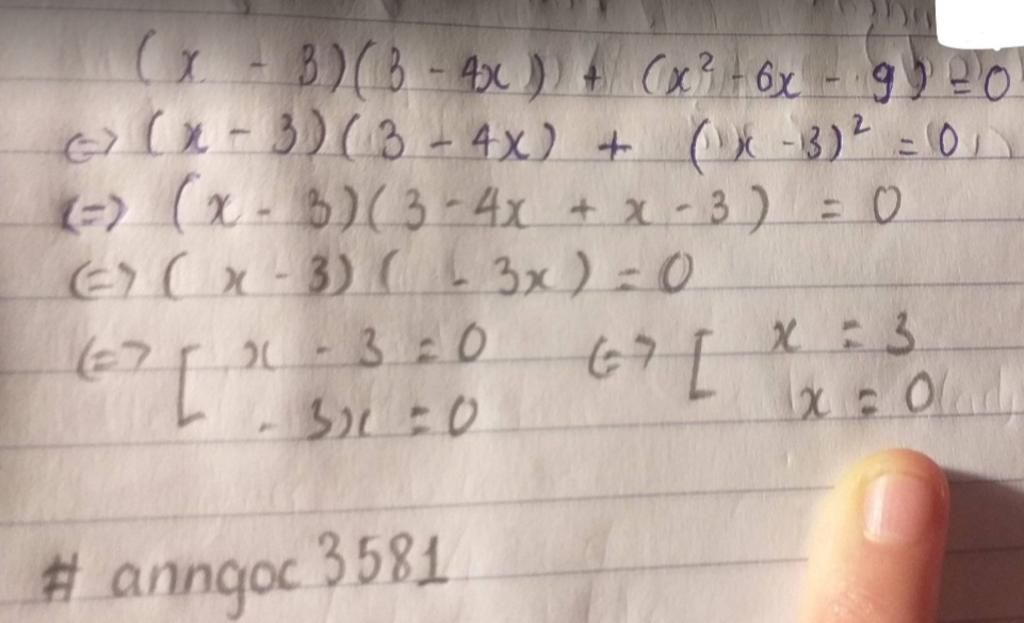 (x - 3)(3 - 4x) + (x² - 6x - 9) = 0
<=> (x - 3)(3 - 4x) + (x - 3)² = 0
<=> (x - 3)(3 - 4x + x - 3) = 0
<=> (x - 3)( - 3x) = 0
<=> [ x - 3 = 0 <=> [ x = 3
- 3x = 0 x = 0
# anngoc 3581